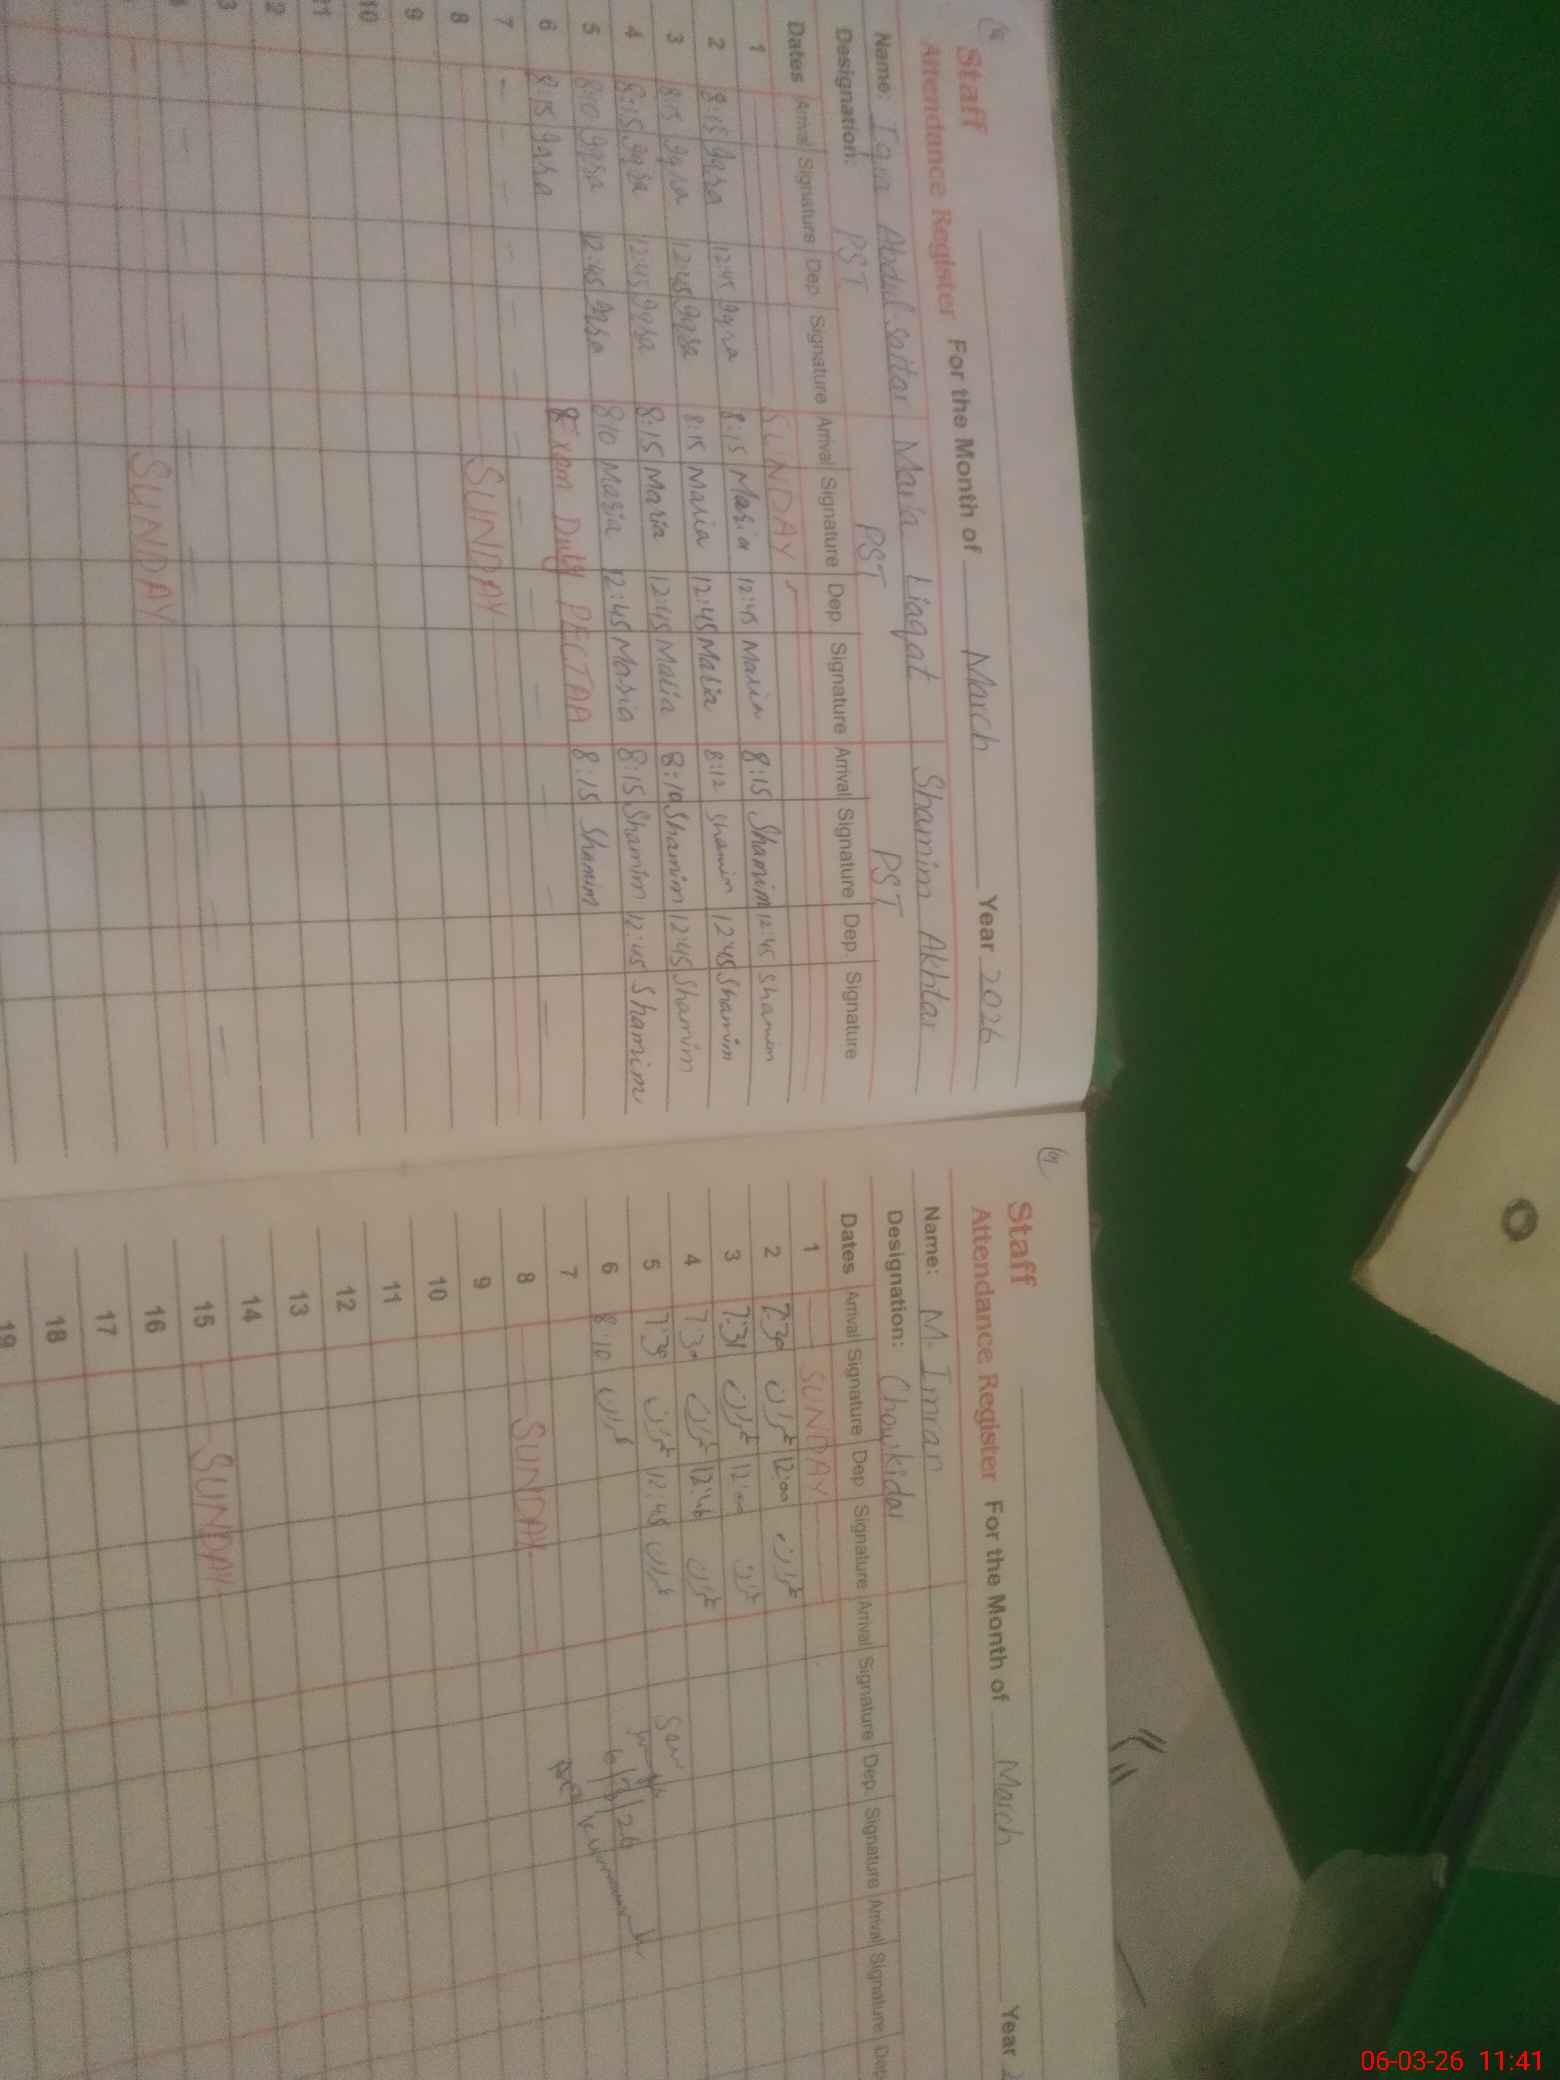 Staff
Attendance Register For the Month of March Year 2026
Name: Iqra Abdul Sattar Maria Liaqat Shamim Akhtar
Designation: PST PST PST
Dates Arrival Signature Dep Signature Arrival Signature Dep. Signature Arrival Signature Dep. Signature
1 SUNDAY
2 8:15 Iqra 12:45 Iqra 8:15 Maria 12:45 Maria 8:15 Shamim 12:45 Shamim
3 8:15 Iqra 12:45 Iqra 8:15 Maria 12:45 Maria 8:12 Shamim 12:45 Shamim
4 8:15 Iqra 12:45 Iqra 8:15 Maria 12:45 Maria 8:10 Shamim 12:45 Shamim
5 8:10 Iqra 12:45 Iqra 8:10 Maria 12:45 Maria 8:15 Shamim 12:45 Shamim
6 8:15 Iqra Exam Duty PECTAA 8:15 Shamim
7
8 SUNDAY
9
10
11
12
13
SUNDAY
Staff
Attendance Register For the Month of March Year 2
Name: M. Imran
Designation: Chowkidar
Dates Arrival Signature Dep Signature Arrival Signature Dep. Signature Arrival Signature Dep
1 SUNDAY
2 7:30 عمران 12:00 عمران
3 7:31 عمران 12:00 عمران
4 7:30 عمران 12:46 عمران
5 7:30 عمران 12:45 عمران
6 8:10 عمران
7
8 SUNDAY
9
10
11
12
13
14
15 SUNDAY
16
17
18
19
6/3/26
06-03-26 11:41